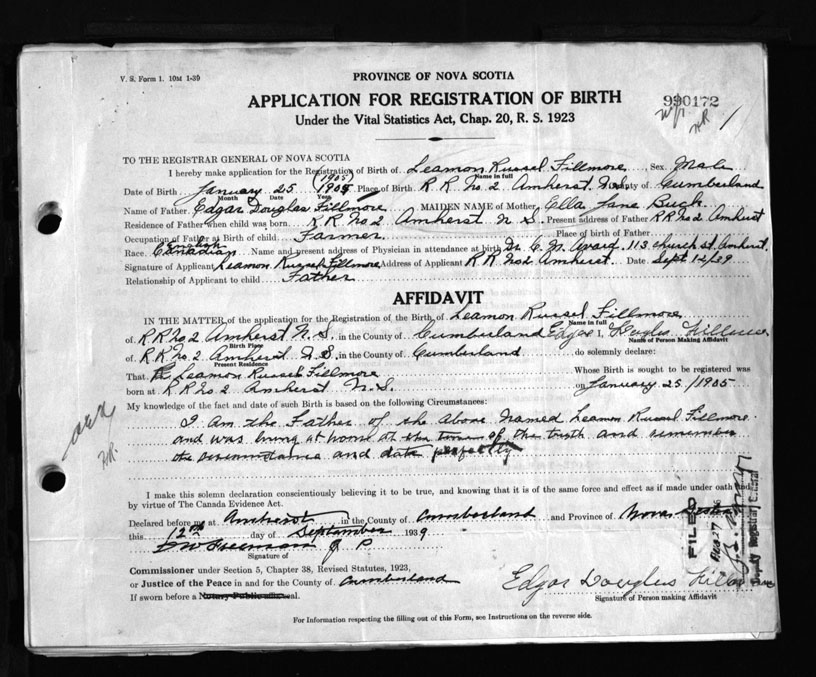 V. S. Form 1. 10M 1-39
PROVINCE OF NOVA SCOTIA
990172
APPLICATION FOR REGISTRATION OF BIRTH
Under the Vital Statistics Act, Chap. 20, R. S. 1923
TO THE REGISTRAR GENERAL OF NOVA SCOTIA
I hereby make application for the Registration of Birth of Leamon Russel Fillmore Sex Male
Name in full
1905
Date of Birth January 25 1905 Place of Birth R R No. 2 Amherst N.S. County of Cumberland
Month Date Year
Name of Father Edgar Douglas Fillmore MAIDEN NAME of Mother Ella Jane Buck
Residence of Father when child was born R R No 2 Amherst N S. Present address of Father R R No 2 Amherst
Occupation of Father at Birth of child Farmer Place of birth of Father
Race. Canadian Name and present address of Physician in attendance at birth Dr. C. M. Avard. 113 Church St. Amherst.
Signature of Applicant Leamon Russel Fillmore Address of Applicant R R No 2 Amherst. Date Sept 12/39
Relationship of Applicant to child Father
AFFIDAVIT
IN THE MATTER of the application for the Registration of the Birth of Leamon Russel Fillmore
Name in full
of R R No 2 Amherst N. S. in the County of Cumberland Edgar I, Douglas Fillmore
Birth Place Name of Person Making Affidavit
of R R No. 2 Amherst N S. in the County of Cumberland do solemnly declare:
Present Residence
That Leamon Russel Fillmore Whose Birth is sought to be registered was
born at R R No 2 Amherst N. S. on January 25/1905
My knowledge of the fact and date of such Birth is based on the following Circumstances:
I Am the Father of the above Named Leamon Russel Fillmore
and was living at home at the time of the birth and remember
the circumstance and date perfectly
I make this solemn declaration conscientiously believing it to be true, and knowing that it is of the same force and effect as if made under oath and
by virtue of The Canada Evidence Act.
Declared before me at Amherst in the County of Cumberland and Province of Nova Scotia
this 12th day of September 1939
Freeman J P
Signature of
Commissioner under Section 5, Chapter 38, Revised Statutes, 1923,
or Justice of the Peace in and for the County of Cumberland
If sworn before a Notary Public affix seal.
Edgar Douglas Fillmore
Signature of Person making Affidavit
For Information respecting the filling out of this Form, see Instructions on the reverse side.
FILED
Deputy Registrar General